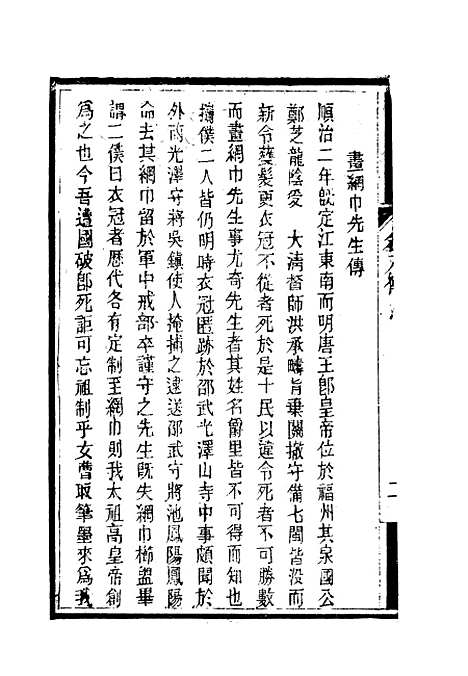 畫網巾先生傳
順治二年旣定江東南而明唐王卽皇帝位於福州其泉國公
鄭芝龍陰受　大淸督師洪承疇旨棄關撤守備七閩皆没而
新令薙髮更衣冠不從者死於是士民以違令死者不可勝數
而畫網巾先生事尤奇先生者其姓名爵里皆不可得而知也
攜僕二人皆仍明時衣冠匿跡於邵武光澤山寺中事頗聞於
外而光澤守將吳鎮使人掩捕之逮送邵武守將池鳳陽鳳陽
命去其網巾留於軍中戒部卒謹守之先生旣失網巾櫛盥畢
謂二僕曰衣冠者歷代各有定制至網巾則我太祖高皇帝創
爲之也今吾遭國破卽死詎可忘祖制乎女曹取筆墨來爲我